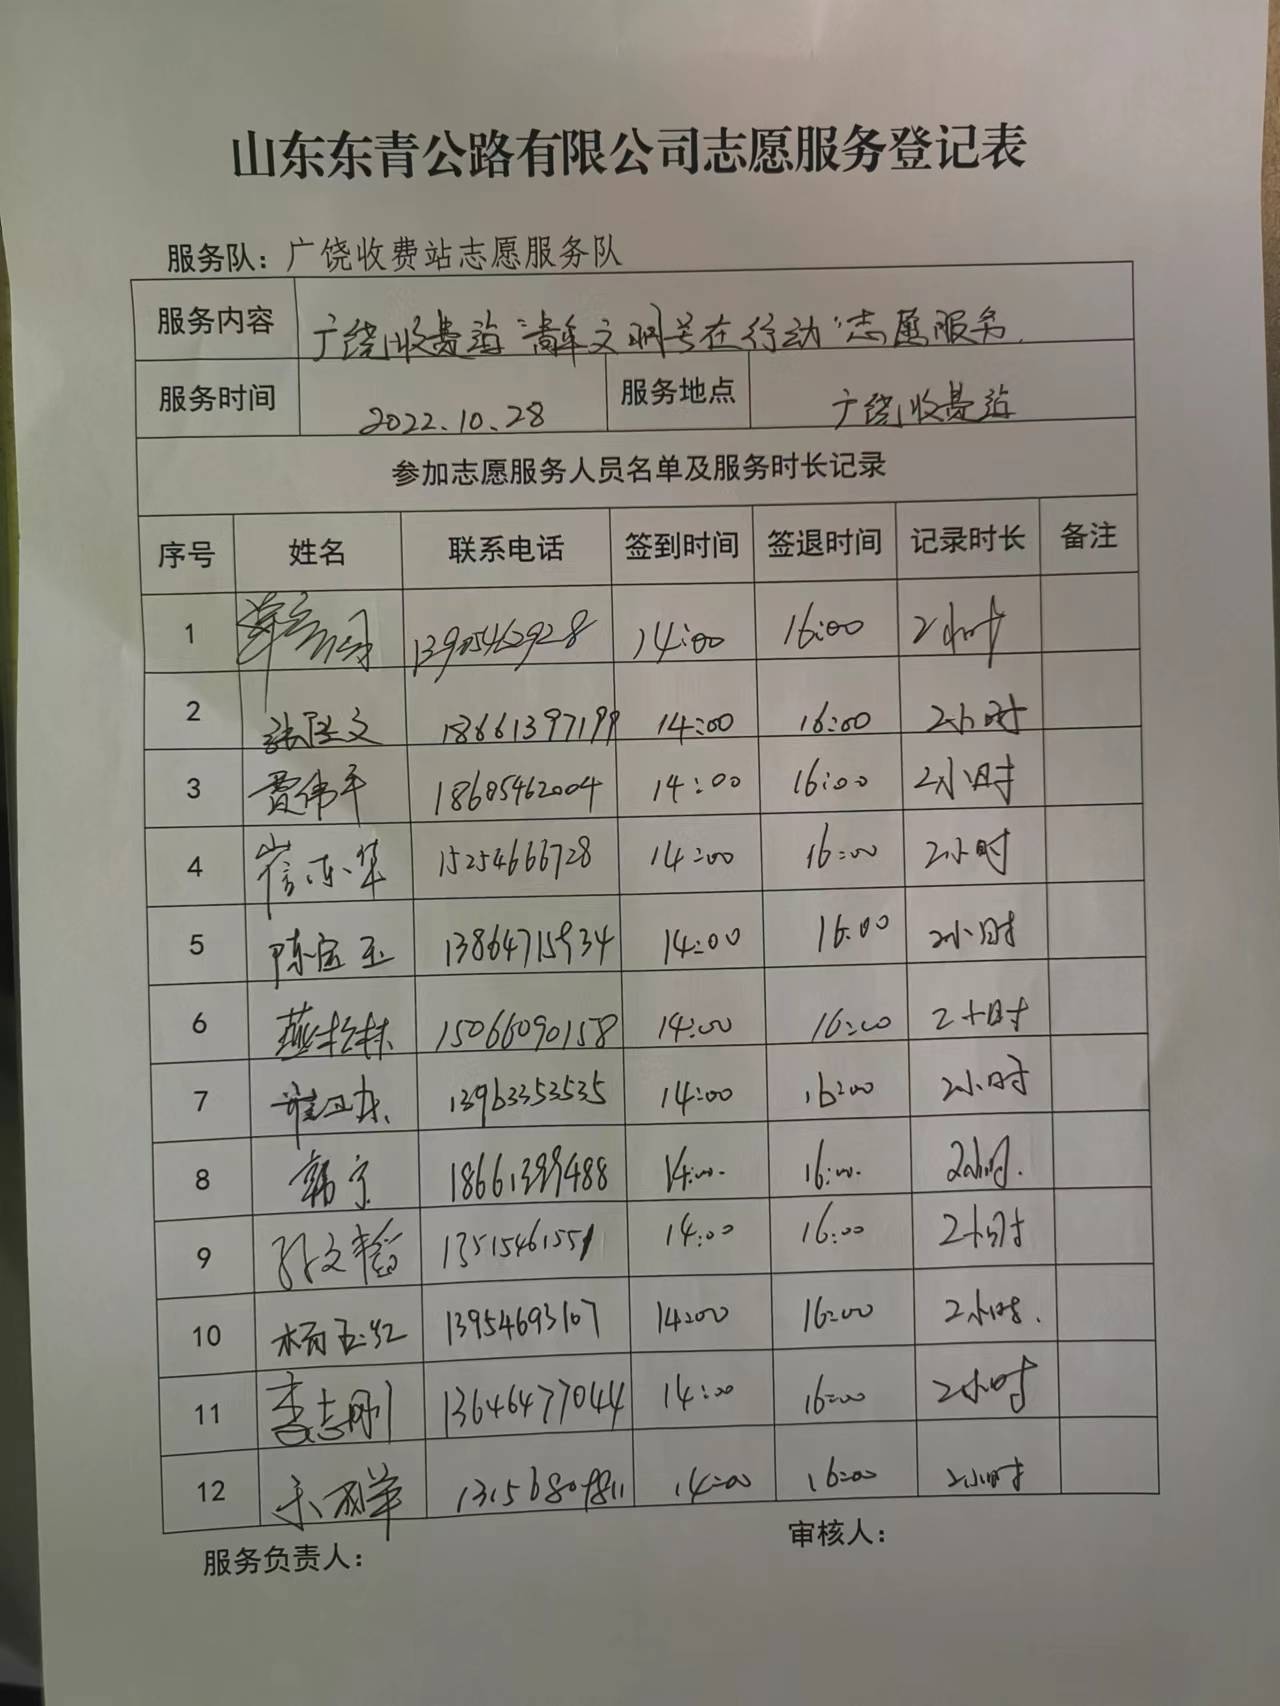 山东东青公路有限公司志愿服务登记表
服务队：广饶收费站志愿服务队
服务内容 广饶收费站"青年文明号在行动"志愿服务
服务时间 2022.10.28 服务地点 广饶收费站
参加志愿服务人员名单及服务时长记录
序号 姓名 联系电话 签到时间 签退时间 记录时长 备注
1 13905462928 14:00 16:00 2小时
2 18661397199 14:00 16:00 2小时
3 贾伟平 18605462004 14:00 16:00 2小时
4 崔东华 15254666728 14:00 16:00 2小时
5 陈宝玉 13864715934 14:00 16:00 2小时
6 燕林林 15066090158 14:00 16:00 2小时
7 13963353535 14:00 16:00 2小时
8 韩宁 18661399488 14:00 16:00 2小时
9 孙文韬 13515461551 14:00 16:00 2小时
10 杨玉红 13954693107 14:00 16:00 2小时
11 李志刚 13646477044 14:00 16:00 2小时
12 14:00 16:00 2小时
服务负责人： 审核人：